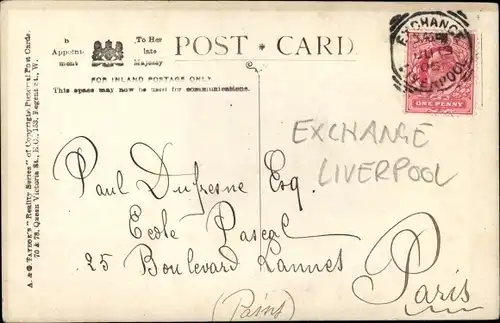 By Appoint-ment
To Her late Majesty
POST CARD
FOR INLAND POSTAGE ONLY
This space may now be used for communications.
A. & G. TAYLOR'S "Reality Series" of Copyright Pictorial Post Cards.
70 & 78, Queen Victoria St., E.C., 153, Regent St., W.
EXCHANGE
LIVERPOOL
ONE PENNY
EXCHANGE
LIVERPOOL
Paul Dufresne Esq.
Ecole Pascal
25 Boulevard Lannes
Paris
(Paris)